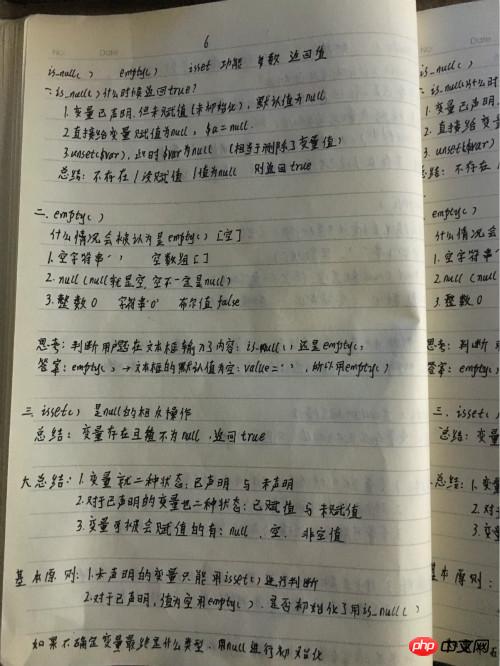 No.
Date
6
is_null() empty() isset 功能 参数 返回值
一. is_null()什么时候返回true?
1. 变量已声明,但未赋值(未初始化),默认值为null
2. 直接给变量赋值为null, $a=null.
3. unset($var), 此时$var为null (相当于删除了变量值)
总结: 不存在/没赋值/值为null 则返回true
二. empty()
什么情况会被认为是empty() [空]
1. 空字符串'' 空数组[]
2. null (null就是空,空不一定是null)
3. 整数0 字符串'0' 布尔值false
思考: 判断用户是否在文本框输入了内容: is_null(), 还是empty()
答案: empty() → 文本框的默认值为空: value='', 所以用empty()
三. isset() 是null的相反操作
总结: 变量存在且值不为null, 返回true
大总结: 1. 变量就二种状态: 已声明 与 未声明
2. 对于已声明的变量也二种状态: 已赋值 与 未赋值
3. 变量可被会赋值的有: null, 空, 非空值
基本原则: 1. 未声明的变量只能用isset()进行判断
2. 对于已声明, 值为空用empty(), 是否初始化了用is_null()
如果不确定变量最终是什么类型, 用null进行初始化
No.
Date
is_null()
is_null()什么时
1. 变量已声
2. 直接给变量
3. unset($var
总结: 不存在
empty()
什么情况会
1. 空字符
2. null (null
3. 整数0
思考: 判断用
答案: empty()
三. isset()
总结: 变量
总结: 1. 变量
2. 对于
3. 变
基本原则:
php中文网